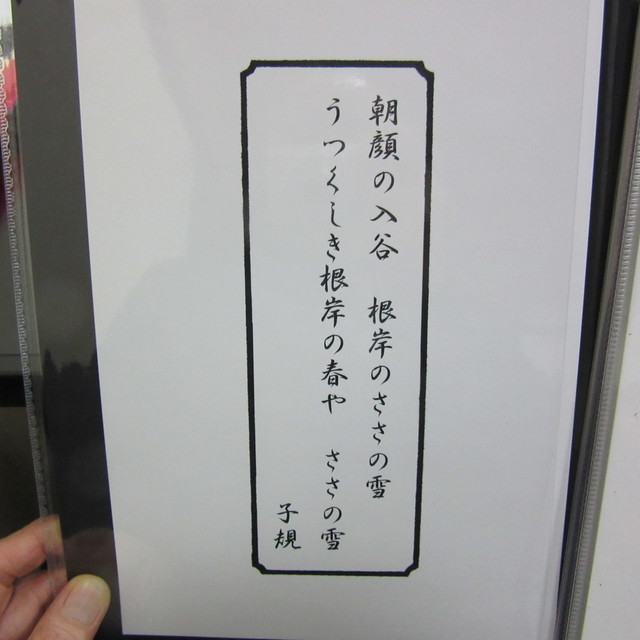 朝顔の入谷　根岸のささの雪
うつくしき根岸の春や　ささの雪
子規